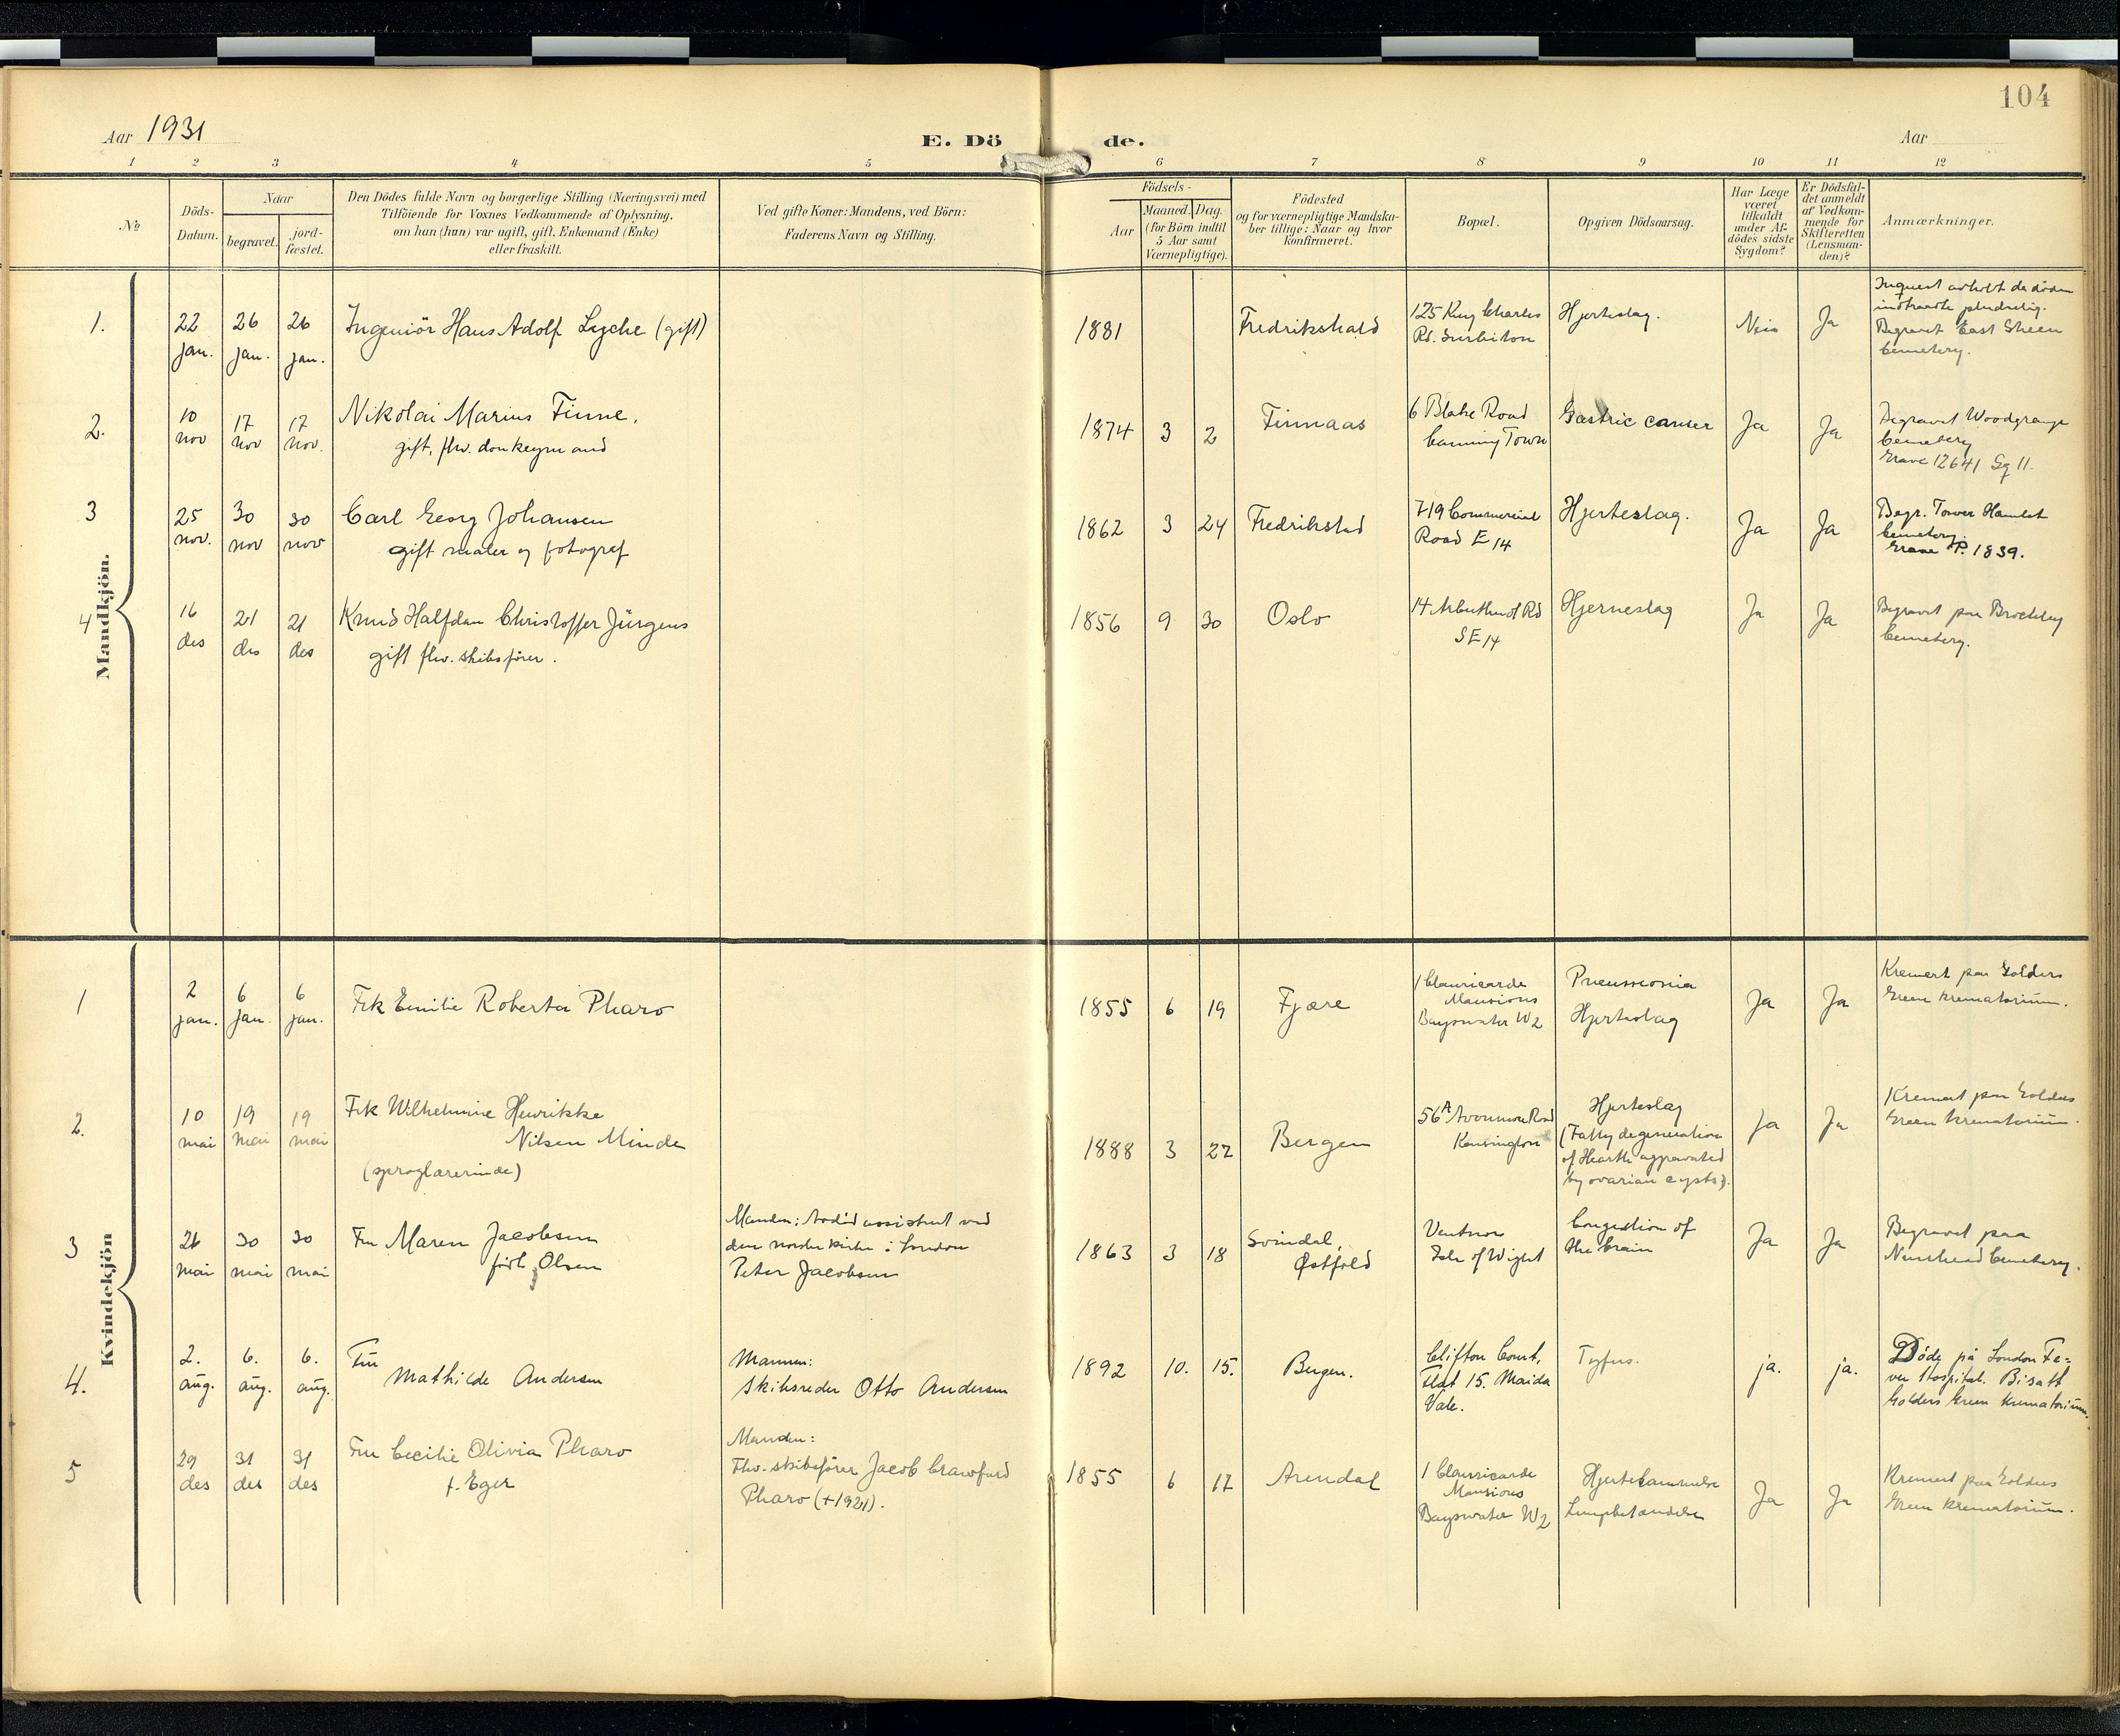 104
Aar 1931
E. Dö
de.
Aar
1 2 3 4 5 6 7 8 9 10 11 12
No
Döds-
Datum.
Naar
begravet.
jord-
fæstet.
Den Dödes fulde Navn og borgerlige Stilling (Næringsvei) med
Tilföiende for Voxnes Vedkommende af Oplysning,
om han (hun) var ugift, gift, Enkemand (Enke)
eller fraskilt.
Ved gifte Koner: Mandens, ved Börn:
Faderens Navn og Stilling.
Födsels-
Aar
Maaned. Dag.
(for Börn indtil
5 Aar samt
Værnepligtige).
Födested
og for værnepligtige Mandska-
ber tillige: Naar og hvor
konfirmeret.
Bopæl.
Opgiven Dödsaarsag.
Har Læge
været
tilkaldt
under Af-
dödes sidste
Sygdom?
Er Dödsfal-
det anmeldt
af Vedkom-
mende for
Skifteretten
(Lensman-
den)?
Anmærkninger.
Mandkjön.
1.
22
jan.
26
jan.
26
jan.
Ingeniör Hans Adolf Lyche (gift)
1881
Fredrikshald
125 King Charles
Rd. Surbiton
Hjerteslag.
Nei
Ja
Inquest avholdt da døden
indtraadte pludselig.
Begravet East Sheen
Cemetery.
2.
10
nov
17
nov
17
nov.
Nikolai Marius Finne,
gift, fhv. donkeymand
1874
3
2
Finnaas
6 Blake Road
Canning Town
Gastric cancer
Ja
Ja
Begravet Woodgrange
Cemetery
Grave 12641 Sq 11.
3
25
nov.
30
nov
30
nov
Carl Georg Johansen
gift maler og fotograf
1862
3
24
Fredrikstad
719 Commercial
Road E 14
Hjerteslag.
Ja
Ja
Begr. Tower Hamlet
Cemetery.
Grave P. 1839.
4
16
des
21
des
21
des
Knud Halfdan Christoffer Jürgens
gift fhv. skibsfører.
1856
9
30
Oslo
14 Arbuthnot Rd
SE 14
Hjerneslag
Ja
Ja
Begravet paa Brockley
Cemetery.
Kvindekjön
1
2
jan.
6
jan.
6
jan.
Frk Emilie Roberta Pharo
1855
6
19
Fjære
1 Clanricarde
Mansions
Bayswater W2
Pneumonia
Hjerteslag
Ja
Ja
Kremert paa Golders
Green krematorium.
2.
10
mai
19
mai
19
mai
Frk Wilhelmine Henrikke
Nilsen Minde
(sproglærerinde)
1888
3
22
Bergen
56A Avonmore Road
Kensington
Hjerteslag
(Fatty degeneration
of Hearth aggravated
by ovarian cysts).
Ja
Ja
Kremert paa Golders
Green krematorium.
3
26
mai
30
mai
30
mai
Fru Maren Jacobsen
født Olsen
Manden: assistent ved
den norske kirke i London
Peter Jacobsen
1863
3
18
Svindal,
Østfold
Ventnor
Isle of Wight
Congestion of
the brain
Ja
Ja
Begravet paa
Nunhead Cemetery.
4.
2.
aug.
6.
aug.
6.
aug.
Fru
Mathilde Andersen
Mannen:
Skibsreder Otto Andersen
1892
10.
15.
Bergen.
Clifton Court,
Flat 15. Maida
Vale.
Tyfus.
ja.
ja.
Døde på London Fe=
ver Hospital. Bisatt
Golders Green Krematorium.
5
29
des
31
des
31
des
Fru Cecilie Olivia Pharo
f. Eger
Manden:
Fhv. skibsfører Jacob Crawfurd
Pharo (+1921).
1855
6
17
Arendal
1 Clanricarde
Mansions
Bayswater W2
Hjertelammelse
Lungebetændelse
Ja
Ja
Kremert paa Golders
Green krematorium.